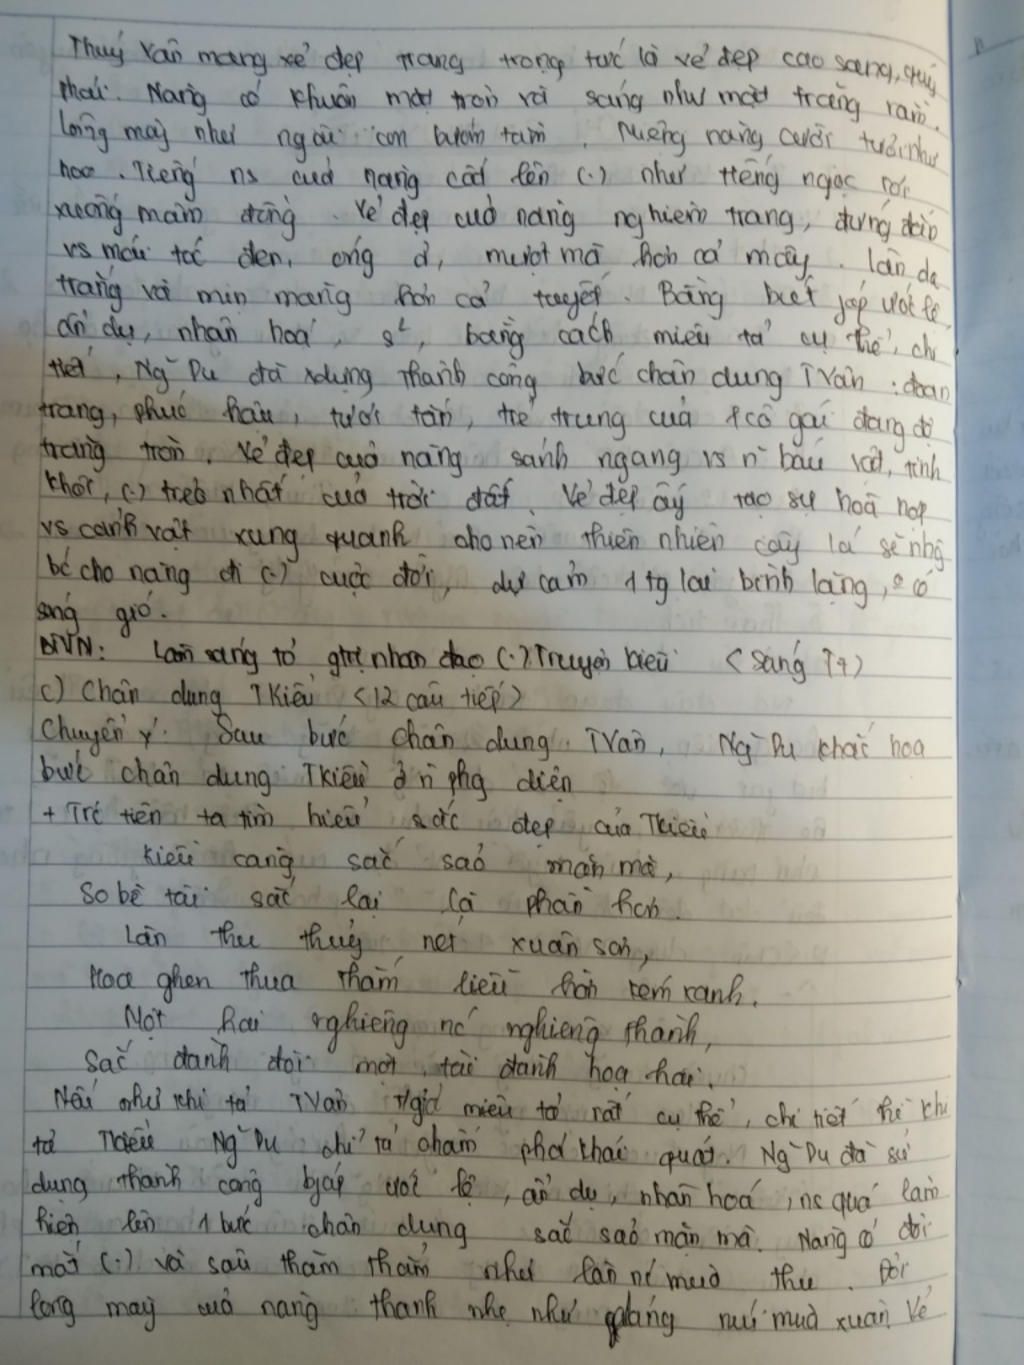 Thuý Vân mang vẻ đẹp trang trọng tức là vẻ đẹp cao sang, quý
phái. Nàng có khuôn mặt tròn và sáng như mặt trăng rằm.
Lông mày như ngài con bướm tằm. Miệng nàng cười tươi như
hoa. Tiếng ns cuả nàng cất lên (.) như tiếng ngọc rơi
xuống mâm đồng. Vẻ đẹp cuả nàng nghiêm trang, đứng đắn
vs mái tóc đen, óng ả, mượt mà hơn cả mây. Làn da
trắng và mịn màng hơn cả tuyết. Bằng bút pháp ước lệ,
ẩn dụ, nhân hoá, s², bằng cách miêu tả cụ thể, chi
tiết, Ng~ Du đã xdựng thành công bức chân dung TVân: đoan
trang, phúc hậu, tươi tắn, trẻ trung cuả 1 cô gái đang độ
trăng tròn. Vẻ đẹp cuả nàng sánh ngang vs n~ báu vật, tinh
khôi, (.) trẻo nhất cuả trời đất. Vẻ đẹp ấy tạo sự hoà hợp
vs cảnh vật xung quanh cho nên thiên nhiên cây lá sẽ nhỏ
bé cho nàng đi (.) cuộc đời, dự cảm 1 tg lai bình lặng, 0 có
sóng gió.
BTVN: Làm sáng tỏ gtrị nhân đạo (.) Truyện Kiều (Sáng T4)
c) Chân dung TKiều (12 câu tiếp)
Chuyển ý: Sau bức chân dung TVân, Ng~ Du khắc hoạ
bức chân dung TKiều ở n~ phg diện
+ Trc tiên ta tìm hiểu sắc đẹp của TKiều
Kiều càng sắc sảo mặn mà,
So bề tài sắc lại là phần hơn.
Làn thu thuỷ nét xuân sơn,
Hoa ghen thua thắm liễu hờn kém xanh.
Một hai nghiêng nc nghiêng thành,
Sắc đành đòi một, tài đành hoạ hai.
Nếu như khi tả TVân t/giả miêu tả rất cụ thể, chi tiết thì khi
tả TKiều Ng~ Du chỉ tả chấm phá khái quát. Ng~ Du đã sử
dụng thành công bpháp ước lệ, ẩn dụ, nhân hoá, ns quá làm
hiện lên 1 bức chân dung sắc sảo mặn mà. Nàng có đôi
mắt (.) và sâu thăm thẳm như làn nc muà thu. Đôi
lông mày cuả nàng thanh nhẹ như dáng núi muà xuân. Vẻ